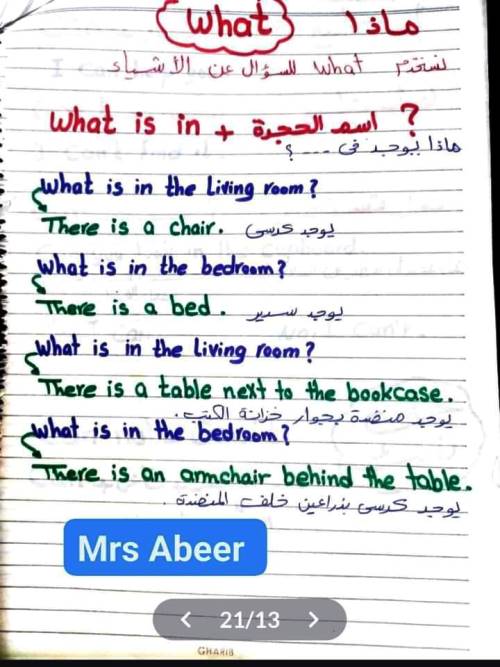 What ماذا
نستخدم What للسؤال عن الأشياء
What is in + اسم الحجرة ?
ماذا يوجد فى .... ؟
What is in the living room?
There is a chair. يوجد كرسى
What is in the bedroom?
There is a bed. يوجد سرير
What is in the living room?
There is a table next to the bookcase.
يوجد منضدة بجوار خزانة الكتب.
What is in the bedroom?
There is an armchair behind the table.
يوجد كرسى بذراعين خلف المنضدة.
Mrs Abeer
21/13
GHARIB